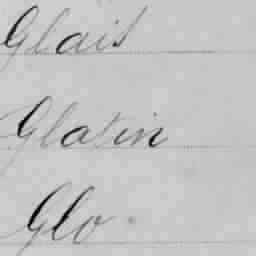 Glais
Glatin
Glo